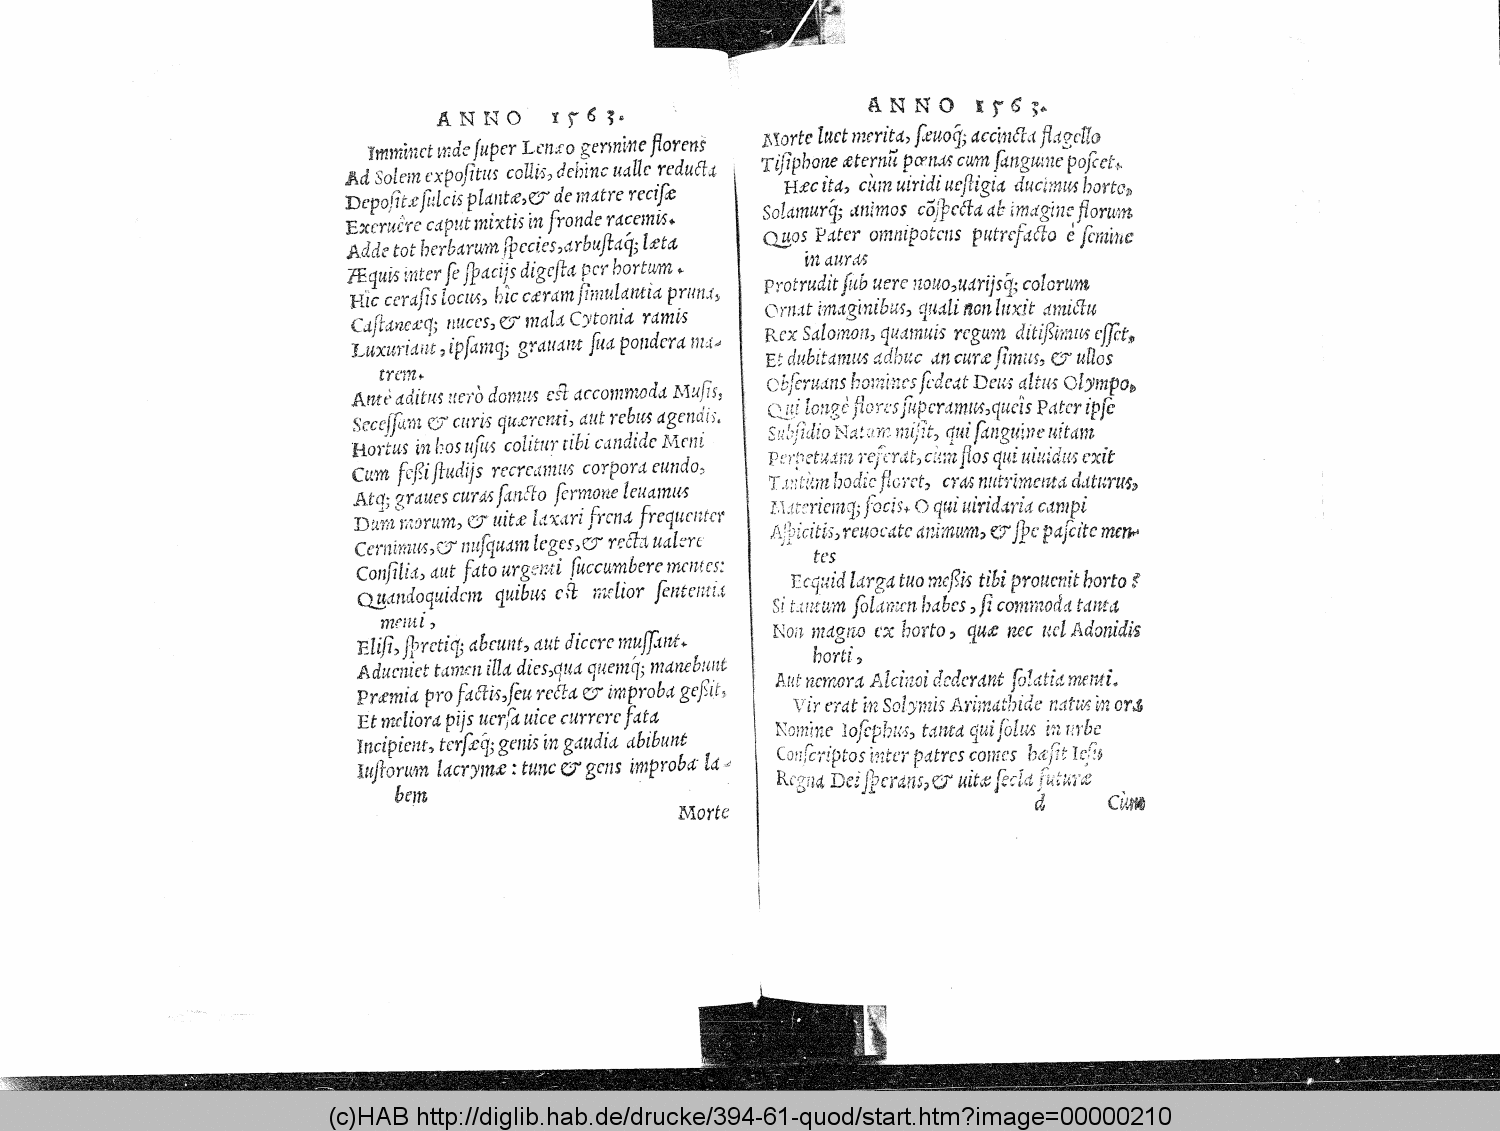 ANNO 1563.
Imminet inde ſuper Lenæo germine florens
Ad Solem expoſitus collis, dehinc ualle reducta
Depoſitæ ſulcis plantæ, & de matre reciſæ
Exeruêre caput mixtis in fronde racemis.
Adde tot herbarum ſpecies, arbuſtaq́; læta
Æquis inter ſe ſpacijs digeſta per hortum.
Hîc ceraſis locus, hîc cæram ſimulantia pruna,
Caſtaneæq; nuces, & mala Cytonia ramis
Luxuriant, ipſamq; grauant ſua pondera ma-
trem.
Antè aditus uerò domus eſt accommoda Muſis,
Seceſſum & curis quærenti, aut rebus agendis.
Hortus in hos uſus colitur tibi candide Meni
Cum feßi ſtudijs recreamus corpora eundo,
Atq; graues curas ſancto ſermone leuamus
Dum morum, & uitæ laxari frena frequenter
Cernimus, & nuſquam leges, & recta ualere
Conſilia, aut fato urgenti ſuccumbere mentes:
Quandoquidem quibus eſt melior ſententia
menti,
Eliſi, ſpretiq; abeunt, aut dicere muſſant.
Adueniet tamen illa dies, qua quemq́; manebunt
Præmia pro factis, ſeu recta & improba geßit,
Et meliora pijs uerſa uice currere fata
Incipient, terſæq́; genis in gaudia abibunt
Iuſtorum lacrymæ: tunc & gens improba la-
bem
Morte
ANNO 1563.
Morte luet merita, ſæuoq̃; accincta flagello
Tiſiphone æternũ pœnas cum ſanguine poſcet.
Hæc ita, cùm uiridi ueſtigia ducimus horto,
Solamurq́; animos cõſpecta ab imagine florum
Quos Pater omnipotens putrefacto è ſemine
in auras
Protrudit ſub uere nouo, uarijsq̃; colorum
Ornat imaginibus, quali non luxit amictu
Rex Salomon, quamuis regum ditißimus eſſet,
Et dubitamus adhuc an curæ ſimus, & ullos
Obſeruans homines ſedeat Deus altus Olympo,
Qui longè flores ſuperamus, queîs Pater ipſe
Subſidio Natum miſit, qui ſanguine uitam
Perpetuam referat, cùm flos qui uiuidus exit
Tantùm hodie floret, cras nutrimenta daturus,
Materiemq; focis. O qui uiridaria campi
Aſpicitis, reuocate animum, & ſpe paſcite men-
tes
Ecquid larga tuo meßis tibi prouenit horto?
Si tantum ſolamen habes, ſi commoda tanta
Non magno ex horto, quæ nec uel Adonidis
horti,
Aut nemora Alcinoi dederant ſolatia menti.
Vir erat in Solymis Arimathide natus in ora
Nomine Ioſephus, tanta qui ſolus in urbe
Conſcriptos inter patres comes hæſit Ieſu
Regna Dei ſperans, & uitæ ſecla futuræ
d Cùm
(c)HAB http://diglib.hab.de/drucke/394-61-quod/start.htm?image=00000210